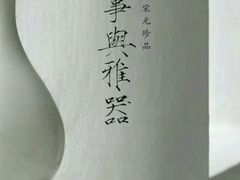 宋元珍品
事與雅器